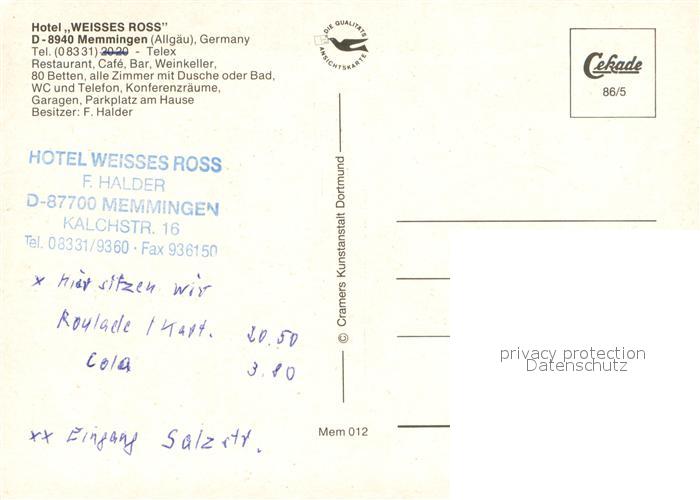 Hotel „WEISSES ROSS"
D-8940 Memmingen (Allgäu), Germany
Tel. (08331) 2020 - Telex
Restaurant, Café, Bar, Weinkeller,
80 Betten, alle Zimmer mit Dusche oder Bad,
WC und Telefon, Konferenzräume,
Garagen, Parkplatz am Hause
Besitzer: F. Halder
HOTEL WEISSES ROSS
F. HALDER
D-87700 MEMMINGEN
KALCHSTR. 16
Tel. 08331/9360 · Fax 936150
x Hier sitzen wir
Roulade / Kart. 20.50
Cola 3.80
xx Eingang Salzstr.
DIE QUALITÄTS
ANSICHTSKARTE
© Cramers Kunstanstalt Dortmund
Mem 012
Cekade
86/5
privacy protection
Datenschutz